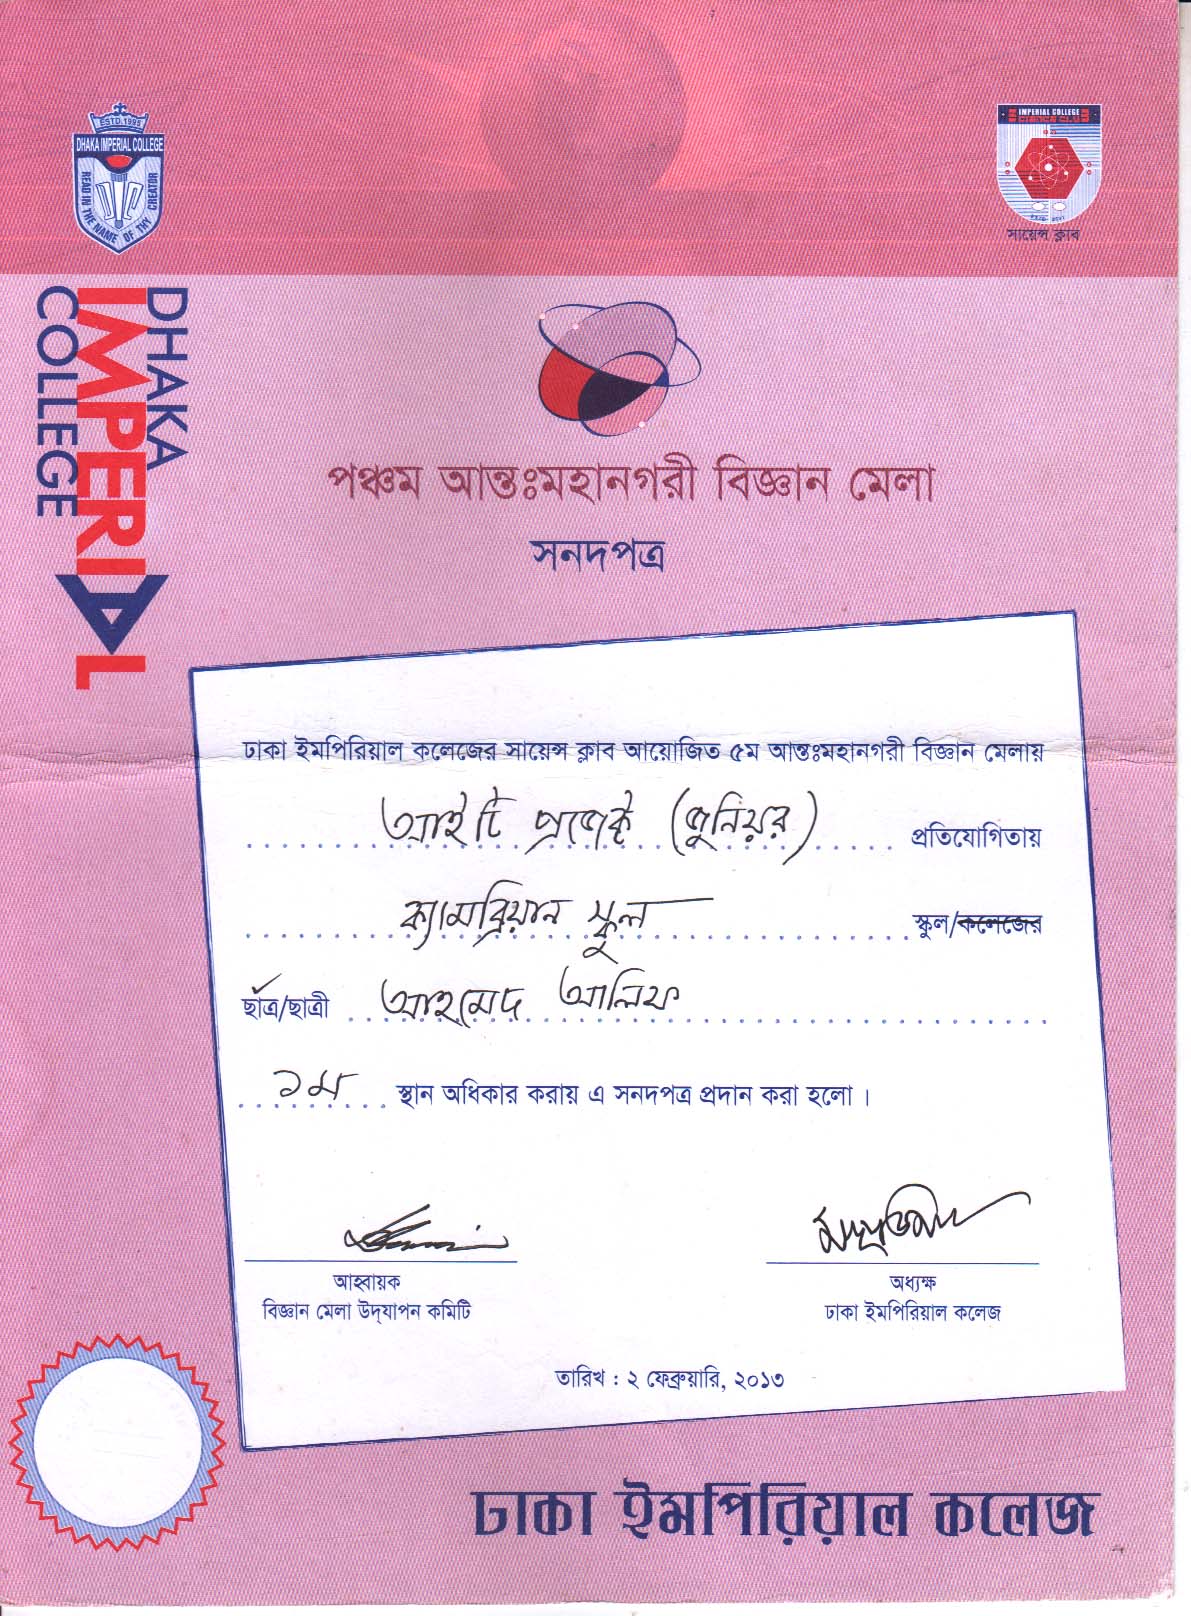 ESTD. 1995
DHAKA IMPERIAL COLLEGE
READ IN THE NAME OF THY CREATOR
IMPERIAL COLLEGE
SCIENCE CLUB
সায়েন্স ক্লাব
DHAKA
IMPERIAL
COLLEGE
পঞ্চম আন্তঃমহানগরী বিজ্ঞান মেলা
সনদপত্র
ঢাকা ইমপিরিয়াল কলেজের সায়েন্স ক্লাব আয়োজিত ৫ম আন্তঃমহানগরী বিজ্ঞান মেলায়
আইটি প্রজেক্ট (জুনিয়র) প্রতিযোগিতায়
ক্যামব্রিয়ান স্কুল স্কুল/কলেজের
ছাত্র/ছাত্রী আহমেদ আলিফ
১ম স্থান অধিকার করায় এ সনদপত্র প্রদান করা হলো।
আহ্বায়ক
বিজ্ঞান মেলা উদ্‌যাপন কমিটি
অধ্যক্ষ
ঢাকা ইমপিরিয়াল কলেজ
তারিখ : ২ ফেব্রুয়ারি, ২০১৩
ঢাকা ইমপিরিয়াল কলেজ